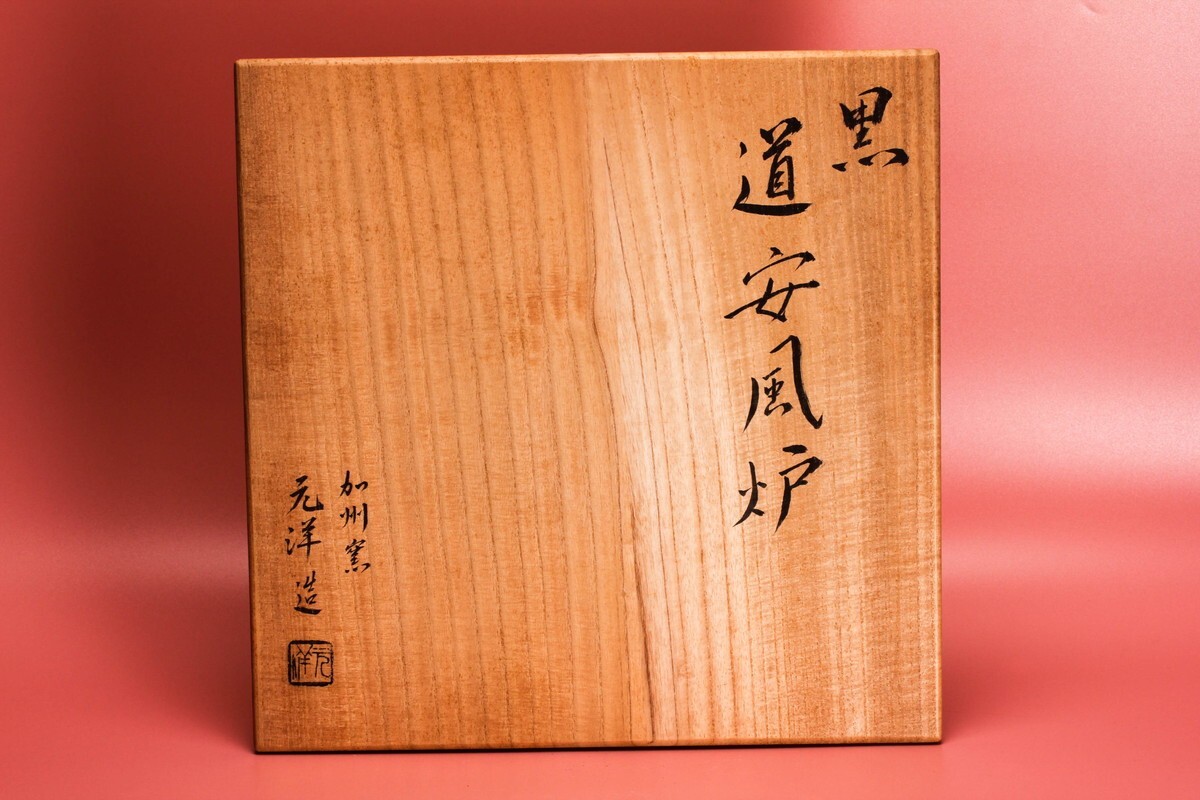 黒
道安風炉
加州窯
元洋造
元洋